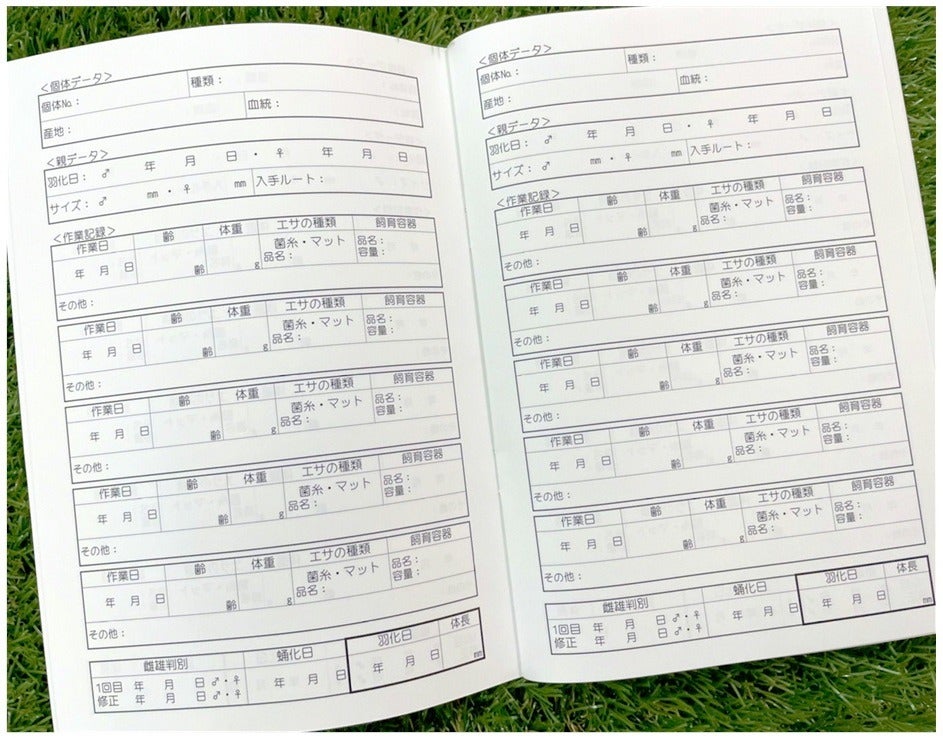 <個体データ>
個体No.： 種類：
産地： 血統：
<親データ>
羽化日：♂ 年 月 日・♀ 年 月 日
サイズ：♂ mm・♀ mm 入手ルート：
<作業記録>
作業日 齢 体重 エサの種類 飼育容器
年 月 日 齢 g 菌糸・マット 品名： 品名： 容量：
その他：
作業日 齢 体重 エサの種類 飼育容器
年 月 日 齢 g 菌糸・マット 品名： 品名： 容量：
その他：
作業日 齢 体重 エサの種類 飼育容器
年 月 日 齢 g 菌糸・マット 品名： 品名： 容量：
その他：
作業日 齢 体重 エサの種類 飼育容器
年 月 日 齢 g 菌糸・マット 品名： 品名： 容量：
その他：
作業日 齢 体重 エサの種類 飼育容器
年 月 日 齢 g 菌糸・マット 品名： 品名： 容量：
その他：
雌雄判別 蛹化日 羽化日 体長
1回目 年 月 日 ♂・♀ 年 月 日 年 月 日 mm
修正 年 月 日 ♂・♀
<個体データ>
個体No.： 種類：
産地： 血統：
<親データ>
羽化日：♂ 年 月 日・♀ 年 月 日
サイズ：♂ mm・♀ mm 入手ルート：
<作業記録>
作業日 齢 体重 エサの種類 飼育容器
年 月 日 齢 g 菌糸・マット 品名： 品名： 容量：
その他：
作業日 齢 体重 エサの種類 飼育容器
年 月 日 齢 g 菌糸・マット 品名： 品名： 容量：
その他：
作業日 齢 体重 エサの種類 飼育容器
年 月 日 齢 g 菌糸・マット 品名： 品名： 容量：
その他：
作業日 齢 体重 エサの種類 飼育容器
年 月 日 齢 g 菌糸・マット 品名： 品名： 容量：
その他：
作業日 齢 体重 エサの種類 飼育容器
年 月 日 齢 g 菌糸・マット 品名： 品名： 容量：
その他：
雌雄判別 蛹化日 羽化日 体長
1回目 年 月 日 ♂・♀ 年 月 日 年 月 日 mm
修正 年 月 日 ♂・♀